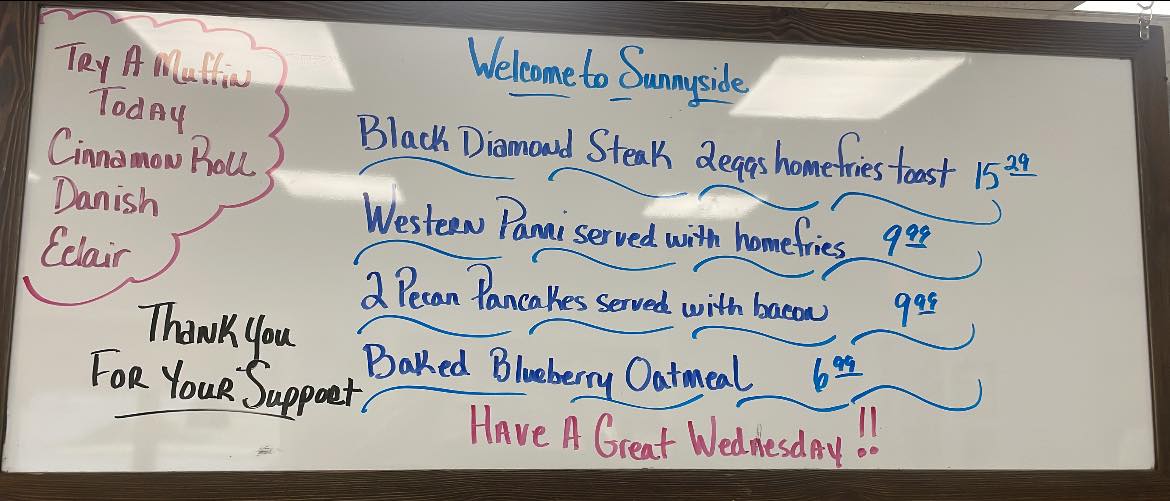 Try A Muffin
Today
Cinnamon Roll
Danish
Eclair
Thank you
For Your Support
Welcome to Sunnyside
Black Diamond Steak 2eggs homefries toast 15 29
Western Panni served with homefries 9 99
2 Pecan Pancakes served with bacon 9 99
Baked Blueberry Oatmeal 6 99
Have A Great Wednesday!!